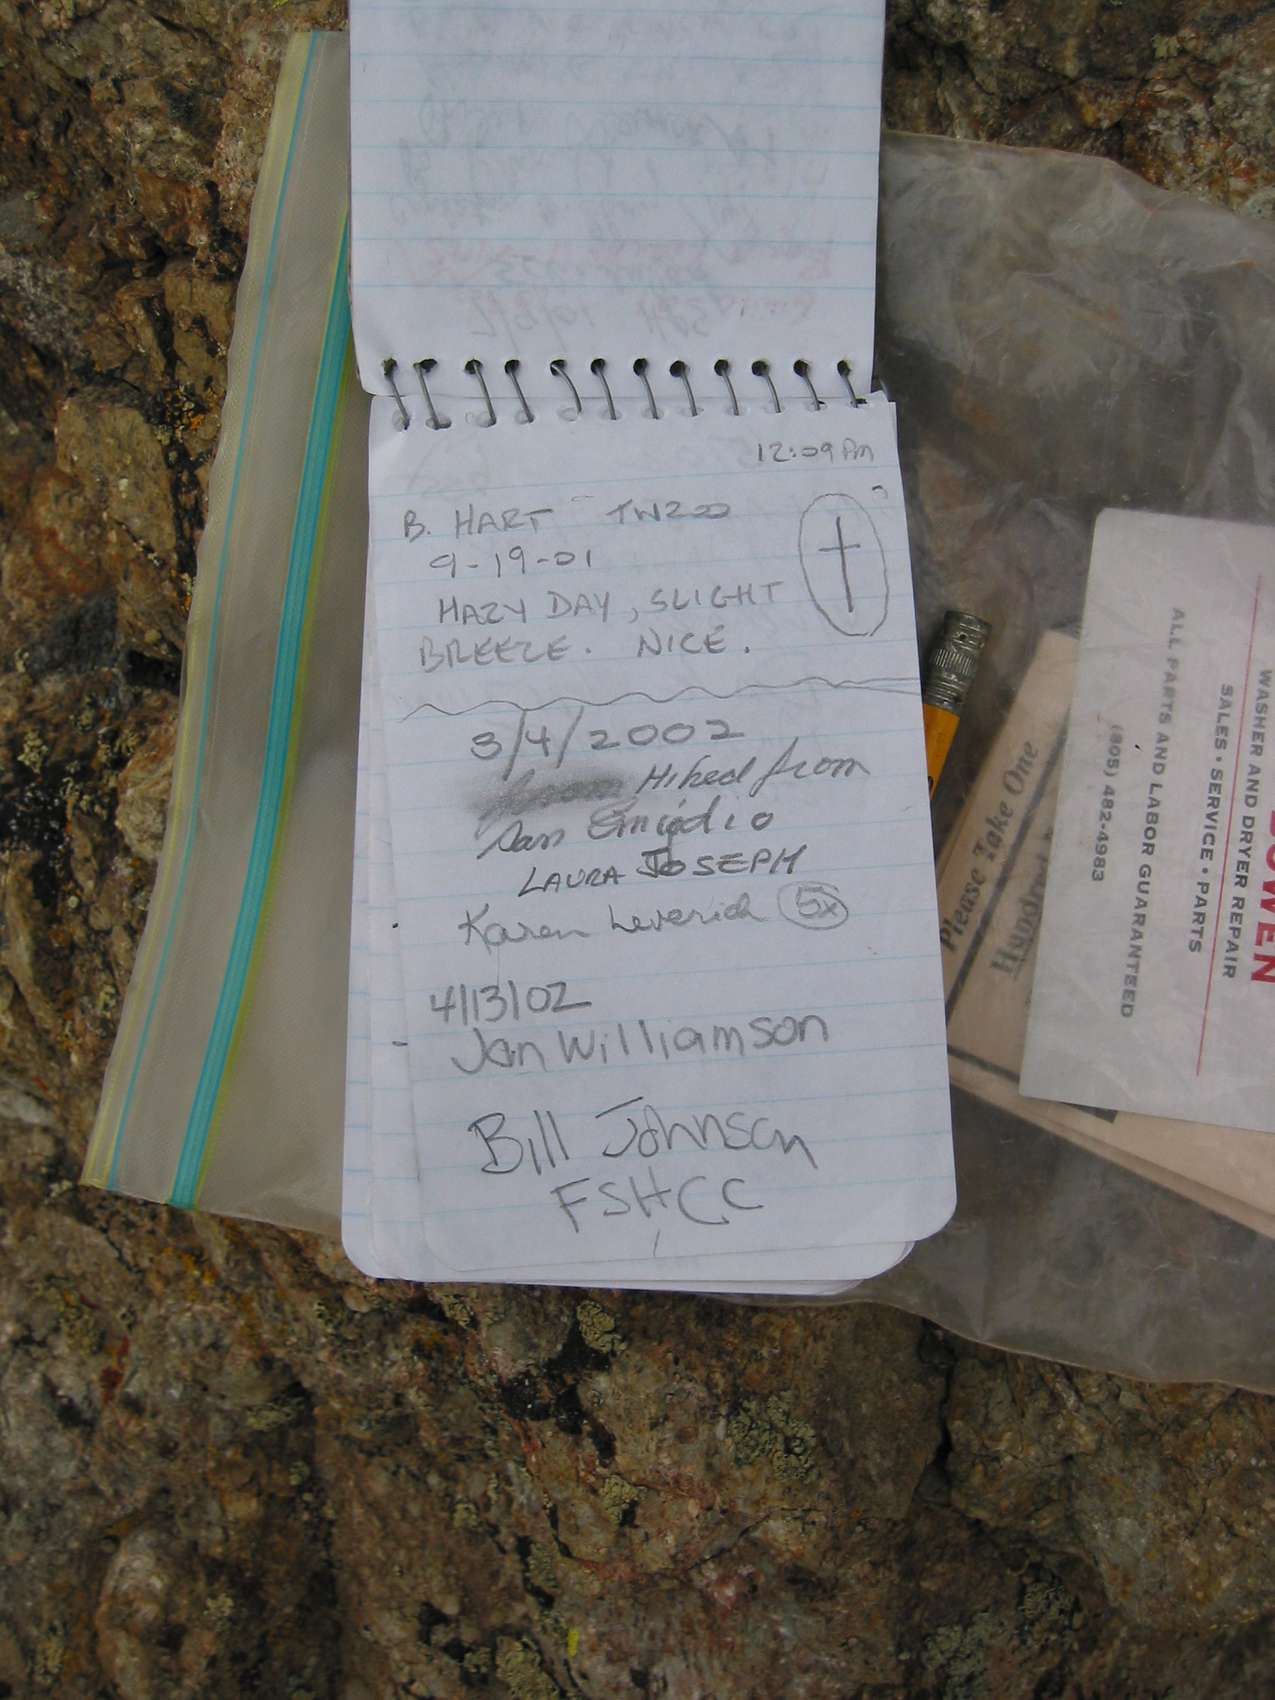 12:09 Pm
B. HART TW200
9-19-01
HAZY DAY, SLIGHT
BREEZE. NICE.
3/4/2002
Hiked from
San Emigdio
LAURA JOSEPH
Karen Leverich 5x
4/13/02
Jan Williamson
Bill Johnson
FSHCC
Please Take One
BOWEN
WASHER AND DRYER REPAIR
SALES • SERVICE • PARTS
ALL PARTS AND LABOR GUARANTEED
(805) 482-4983